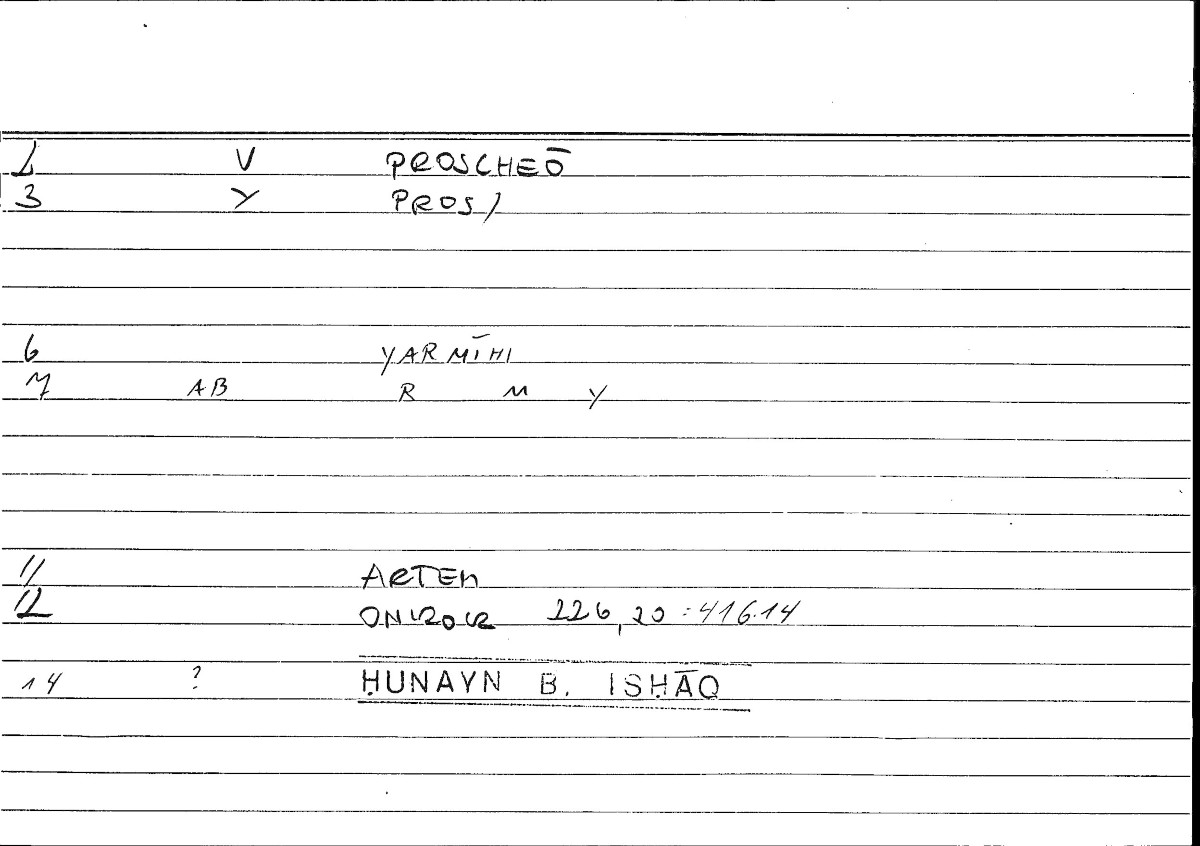 1 V PROSCHEŌ
3 Y PROS/
6 YARMĪHI
7 AB R M Y
11 ARTEM
12 ONIROCR 226,20:416.14
14 ? ḤUNAYN B. ISḤĀQ